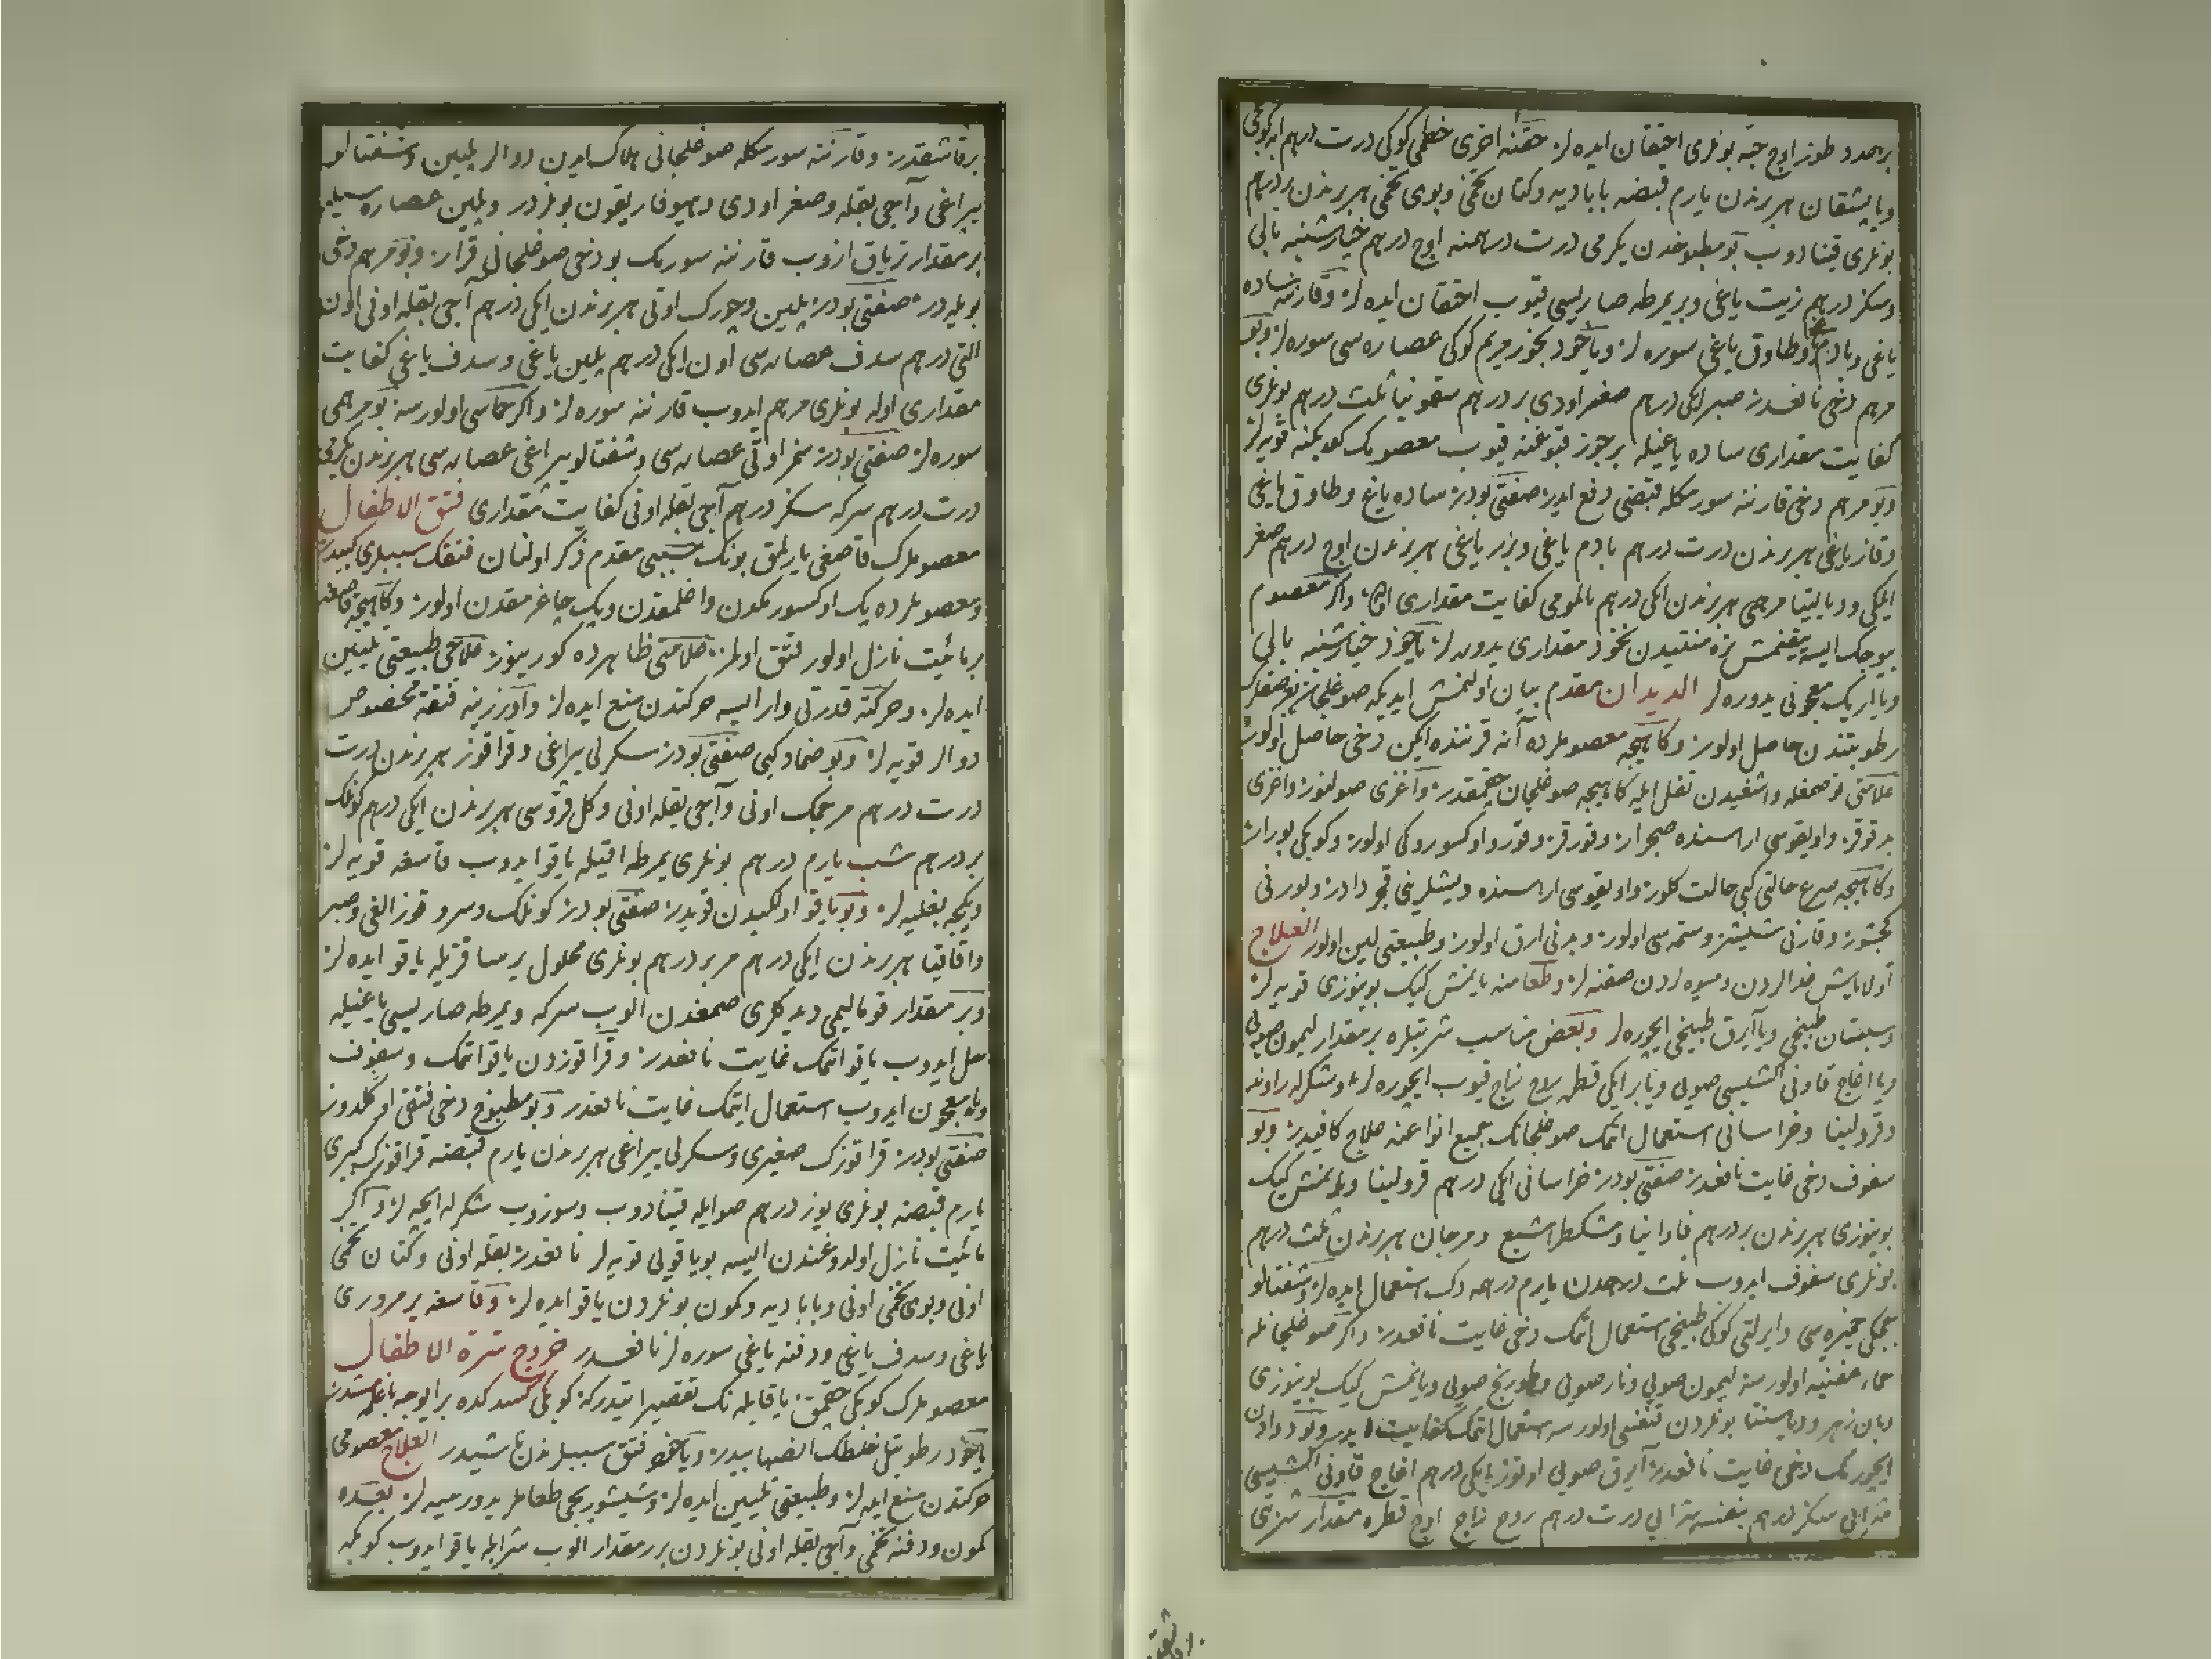 برعدد طوز اوج حبه بونلری احتقان ایده لر حقنه اخری خطمی کوکی درت درهم
وبایشقان هر برندن یارم قبضه بابادیه وکتان تخمی وبوی تخمی هر برندن بر درهم
بونلری قینادوب بو مطبوخدن یکرمی درت درهمنه اوج درهم خیارشنبه بالی
وسکز درهم زیت یاغی وبر یمرطه صاریسی قیوب احتقان ایده لر وقارننه ساده
یاغی وبادم وطاوق یاغی سوره لر ویاخود بخور مریم کوکی عصاره سی سوره لر وبو
مرهم دخی نافعدر صبر ایکی درهم صغر اودی بر درهم سقمونیا ثلث درهم بونلری
کفایت مقداری ساده یاغیله بر جوز قبوغنه قیوب معصومک کوبکنه قویه لر
وبو مرهم دخی قارننه سورمکله قبضی دفع ایدر صفتی بودر ساده یاغ وطاوق یاغی
وقاز یاغی هر برندن درت درهم بادم یاغی وبزر یاغی هر برندن اوج درهم صغر
ایلیکی ودیالتیا مرهمی هر برندن ایکی درهم بالمومی کفایت مقداری واکر معصوم
بیوجک ایسه پیغنمش تره منتیدن نخود مقداری یدوره لر یاخود خیارشنبه بالی
ویا اریک معجونی یدوره لر الدیدان مقدم بیان اولنمش ایدیکه صوغلجان
رطوبتندن حاصل اولور وکاهیجه معصوملرده آنه قرننده ایکن دخی حاصل اولور
علامتی قوصمغله واشغیدن ثقل ایله کاهیجه صوغلجان چقمقدر واغزی صولنور واغزی
بد قوقر واویقوسی اراسنده صچرار وقورقر وقورو اوکسوروکی اولور وکوبکی بورار
وکاهیجه صرع حالتی کبی حالت کلور واویقوسی اراسنده دیشلرینی قجردادر وبورنی
کجشور وقارنی شیشر وستمه سی اولور وبدنی ارق اولور وطبیعتی لین اولور العلاج
اولا یابش غدالردن ومیوه لردن صقنه لر وطعامنه یانمش کیک بوینوزی قویه لر
وسبستان طبیخی ویا آیرق طبیخی ایچوره لر وبعض مناسب شربتلره بر مقدار لیمون صویی
ویا اغاج قاونی اکشیسی صویی ویا بر ایکی قطره روح زاج قیوب ایچوره لر وشکرله راوند
وقرولینا وخراسانی استعمال اتمک صوغلجانک جمیع انواعنه علاج کافیدر وبو
سفوف دخی غایت نافعدر صفتی بودر خراسانی ایکی درهم قرولینا ویانمش کیک
بوینوزی هر برندن بر درهم فاوانیا ومشکطرامشیع ومرجان هر برندن ثلث درهم
بونلری سفوف ایدوب ثلث درهمدن یارم درهمه دک استعمال ایده لر وشفتالو
چچکی خمیره سی وایرلتی کوکی طبیخی استعمال اتمک دخی غایت نافعدر واکر صوغلجانله
حماء عفنیه اولورسه لیمون صویی ونار صویی وطورنج صویی ویانمش کیک بوینوزی
وبان زهر ودیاسنتا بونلردن قنغیسی اولورسه استعمال اتمک کفایت ایدر وبو دوادن
ایچورمک دخی غایت نافعدر آیرق صویی اوتوز ایکی درهم اغاج قاونی اکشیسی
شرابی سکز درهم بنفسه شرابی درت درهم روح زاج اوج قطره مقدار شربتی
برقاشقدر وقارننه سورمکله صوغلجانی هلاک ایدن دوالر پلین وشفتالو
یپراغی وآجی بقله وصغر اودی وهیوفاریقون بونلردر وپلین عصاره سیله
بر مقدار تریاق ازوب قارننه سورمک بو دخی صوغلجانی قرار وبو مرهم دخی
بویله در صفتی بودر پلین وچورک اوتی هر برندن ایکی درهم آجی بقله اونی اون
التی درهم سدف عصاره سی اون ایکی درهم پلین یاغی وسدف یاغی کفایت
مقداری اوله بونلری مرهم ایدوب قارننه سوره لر واکر حماسی اولورسه بو مرهمی
سوره لر صفتی بودر سمز اوتی عصاره سی وشفتالو یپراغی عصاره سی هر برندن یکرمی
درت درهم سرکه سکز درهم آجی بقله اونی کفایت مقداری فتق الاطفال
معصوملرک قاصغی یارلمق بونک سببی مقدم ذکر اولنان فتقک سببلری کبیدر
ومعصوملرده پک اوکسورمکدن واخلمقدن وپک چاغرمقدن اولور وکاهیجه قاصغنه
بر مائیت نازل اولور فتق اولمز علامتی ظاهرده کورینور علاجی طبیعتی تلیین
ایده لر وحرکته قدرتی وار ایسه حرکتدن منع ایده لر واوزرینه فتقه مخصوص
دوالر قویه لر وبو ضماد کبی صفتی بودر سکرلی یپراغی وقراقوز هر برندن درت
درت درهم مرجمک اونی وآجی بقله اونی وکل قروسی هر برندن ایکی درهم کونلک
بر درهم شب یارم درهم بونلری یمرطه اقیله یاقو ایدوب قاسغه قویه لر
وپکجه بغلیه لر وبو یاقو اولکیدن قویدر صفتی بودر کونلک وسرو قوزالغی وصبر
واقاقیا هر برندن ایکی درهم مر بر درهم بونلری محلول بر ساقزیله یاقو ایده لر
وبر مقدار قومالیمی دیدکلری صمغدن الوب سرکه ویمرطه صاریسی یاغیله
حل ایدوب یاقو اتمک غایت نافعدر وقراقوزدن یاقو اتمک وسفوف
ویا معجون ایدوب استعمال ایتمک غایت نافعدر وبو مطبوخ دخی فتقی اوکلدور
صفتی بودر قراقوزک صغیری وسکرلی یپراغی هر برندن یارم قبضه قراقوزک کبیری
یارم قبضه بونلری یوز درهم صو ایله قینادوب وسوزوب شکرله ایچه لر واکر
مائیت نازل اولدوغندن ایسه بو یاقویی قویه لر نافعدر بقله اونی وکتان تخمی
اونی وبوی تخمی اونی وبابادیه وکمون بونلردن یاقو ایده لر وقاسغه یر مروری
یاغی وسدف یاغی ودفنه یاغی سوره لر نافعدر خروج سرة الاطفال
معصوملرک کوبکی چقمق یا قابله نک تقصیراتیدرکه کوبکی کسدکده برایوجه باغلمامشدر
یاخود رطوبتلی غلیظک انصبابیدر ویاخود فتق سببلرندن ناشیدر العلاج معصومی
حرکتدن منع ایده لر وطبیعتی تلیین ایده لر وشیشوریجی طعاملر یدورمیه لر بعده
کمون ودفنه تخمی وآجی بقله اونی بونلردن برر مقدار الوب شرابله یاقو ایدوب کوبکه